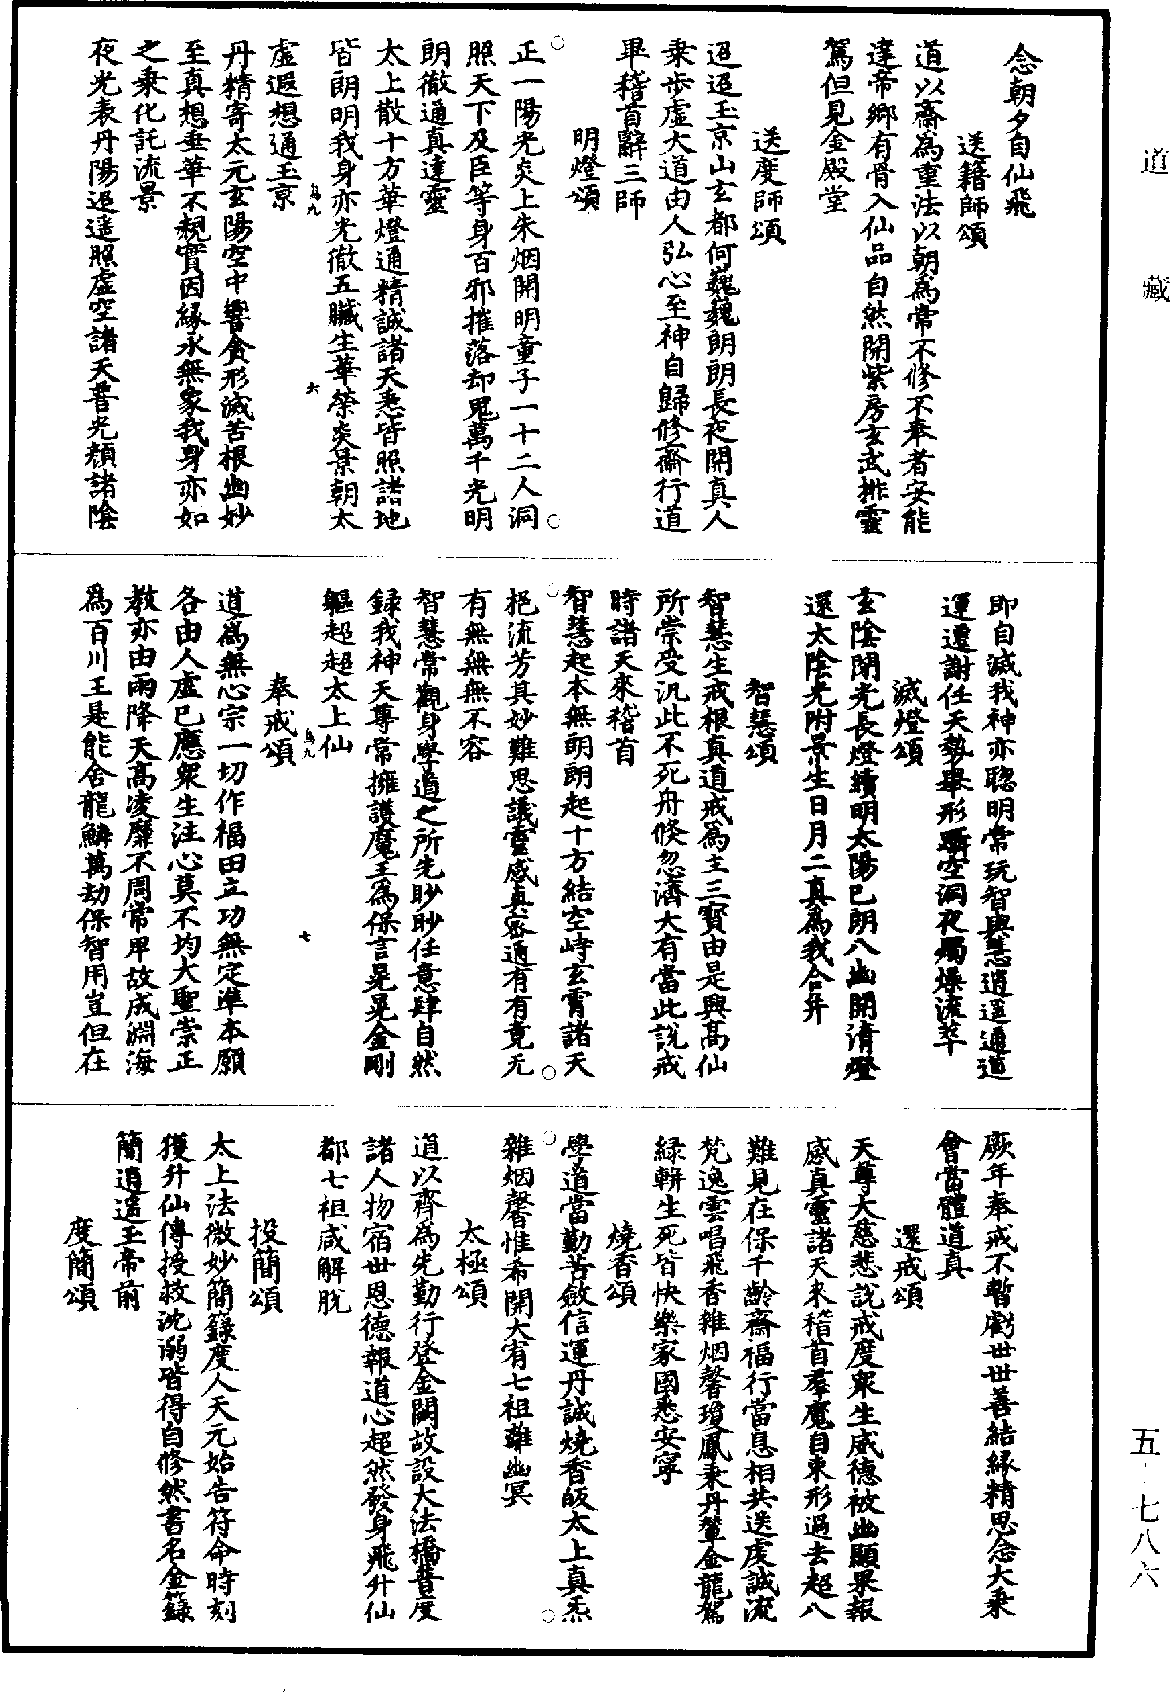 道藏
念朝夕自仙飛
送籍師頌
道以齋為重法以朝為常不修不奉者安能
達帝鄉有骨入仙品自然開紫房玄武排靈
駕但見金殿堂
送度師頌
迢迢玉京山玄都何巍巍朗朗長夜開真人
乘步虛大道由人弘心至神自歸修齋行道
畢稽首辭三師
明燈頌
正一陽光炎上朱烟開明童子一十二人洞
照天下及臣等身百邪摧落却鬼萬千光明
朗徹通真達靈
太上散十方華燈通精誠諸天悉皆照諸地
皆朗明我身亦光徹五臟生華榮炎景朝太
鳥九 六
虛遐想通玉京
丹精寄太元玄陽空中響貪形滅苦根幽妙
至真想垂華不親實因緣永無家我身亦如
之乘化託流景
夜光表丹陽迢遥照虛空諸天普光顏諸陰
即自滅我神亦聰明常玩智與慧逍遥通道
運遷謝任天勢舉形躋空洞夜燭爍流萃
滅燈頌
玄陰閉光長燈續明太陽已朗八幽開清燈
還太陰光附景生日月二真為我合并
智慧頌
智慧生戒根真道戒為主三寶由是興高仙
所崇受汎此不死舟倏忽濟大有當此說戒
時諸天來稽首
智慧起本無朗朗起十方結空峙玄霄諸天
挹流芳其妙難思議靈感真寥通有有竟无
有無無無不容
智慧常觀身學道之所先眇眇任意肆自然
録我神天尊常擁護魔王為保言晃晃金剛
軀超超太上仙
鳥九 七
奉戒頌
道為無心宗一切作福田立功無定準本願
各由人虛己應衆生注心莫不均大聖崇正
教亦由雨降天高凌靡不周常卑故成淵海
為百川王是能舍龍鱗萬劫保智用豈但在
厥年奉戒不暫虧世世善結緣精思念大乘
會當體道真
還戒頌
天尊大慈悲說戒度衆生威德被幽顯果報
感真靈諸天來稽首羣魔自束形過去超八
難見在保千齡齋福行當息相共送虔誠流
梵逸雲唱飛香雜烟馨瓊鳳乘丹輦金龍駕
緑軿生死皆快樂家國悉安寧
燒香頌
學道當勤苦斂信運丹誠燒香皈太上真炁
雜烟馨惟希開大宥七祖離幽冥
太極頌
道以齊為先勤行登金闕故設大法橋普度
諸人物宿世恩德報道心超然發身飛升仙
都七祖咸解脫
投簡頌
太上法微妙簡籙度人天元始告符命時刻
獲升仙傳授救沈溺皆得自修然書名金籙
簡逍遥玉帝前
度簡頌
五-七八六